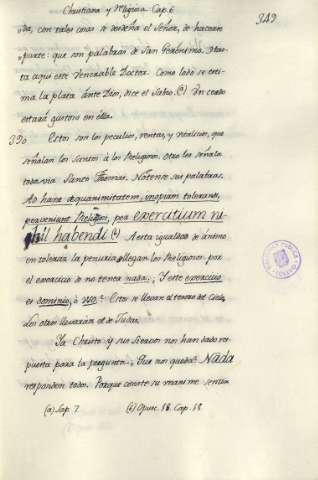 Christiana y Religiosa Cap. 6
349
oda, con tales cosas se desdeña el Señor, de hacerse
parte: que son palabras de San Geronimo. Has-
ta aqui este Venerable Doctor. Como lodo se esti-
ma la plata ante Dios, dice el Sabio. (a) Un lodo
estará gustoso en ella.
390 Estos son los peculios, rentas, y viáticos, que
señalan los Santos á los Religiosos. Otro les señala
todavia Santo Thomas. Notense sus palabras.
Ad hanc æquanimitatem, inopiam tolerandi,
perveniunt Religiosi, per exercitium ni-
hil habendi. (b) A esta igualdad de ánimo
en tolerar la penuria llegan los Religiosos por
el exercicio de no tener nada. Y este exercicio
es dominio, ó uso? Estos se llevan al tesoro del Cielo,
Los otros llevarán el de Judas.
Ya Christo y sus Siervos nos han dado res-
puesta para la pregunta. Que nos queda? Nada
responden todos. Porque consite su maxime sentia
(a) Sap. 7. (b) Opusc. 18. Cap. 18.